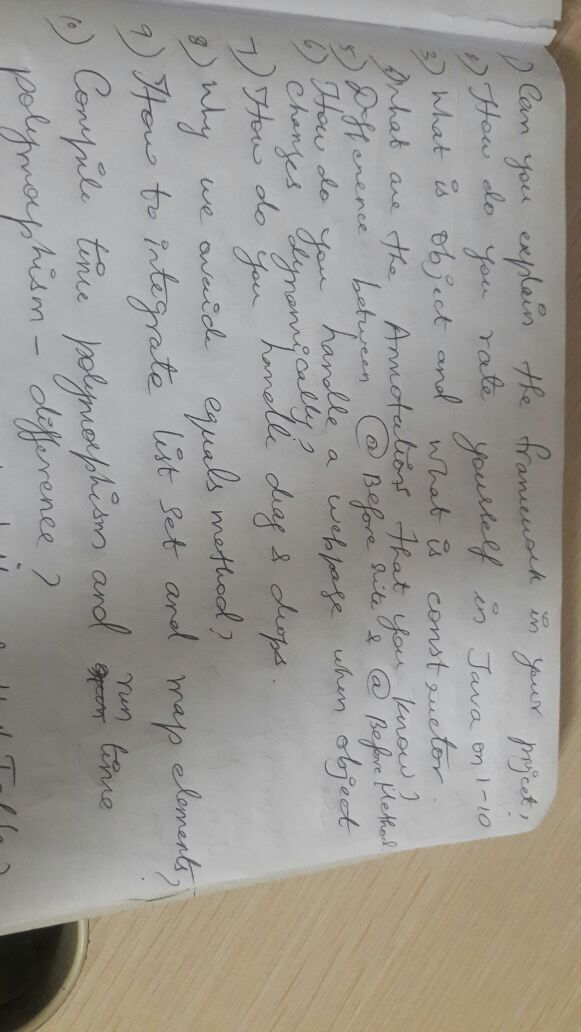 1) Can you explain the framework in your project,
2) How do you rate yourself in Java on 1-10
3) What is object and what is constructor.
What are the Annotations that you know?
5) Difference between @Before suite & @BeforeMethod
6) How do you handle a webpage when object
changes dynamically?
7) How do you handle drag & drops.
8) Why we override equals method?
9) How to integrate list set and map elements?
10) Compile time polymorphism and run time
polymorphism - difference?